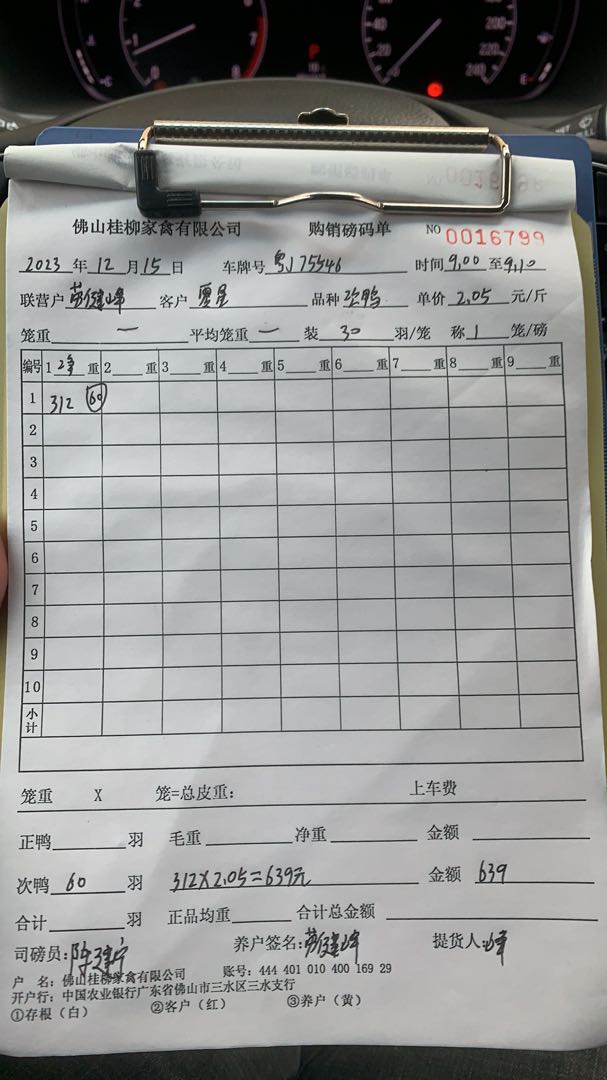 佛山桂柳家禽有限公司 购销磅码单 NO 0016799
2023 年 12 月 15 日 车牌号 粤J75546 时间 9:00 至 9:10
联营户 健峰 客户 夏星 品种 次鸭 单价 2.05 元/斤
笼重 一 平均笼重 一 装 30 羽/笼 称 1 笼/磅
编号 1 净 重 2 重 3 重 4 重 5 重 6 重 7 重 8 重 9 重
1 312 60
2
3
4
5
6
7
8
9
10
小计
笼重 X 笼=总皮重: 上车费
正鸭 羽 毛重 净重 金额
次鸭 60 羽 312×2.05=639元 金额 639
合计 羽 正品均重 合计总金额
司磅员: 陈建宁 养户签名: 健峰 提货人: 峰
户 名: 佛山桂柳家禽有限公司 账号: 444 401 010 400 169 29
开户行: 中国农业银行广东省佛山市三水区三水支行
①存根(白) ②客户(红) ③养户(黄)